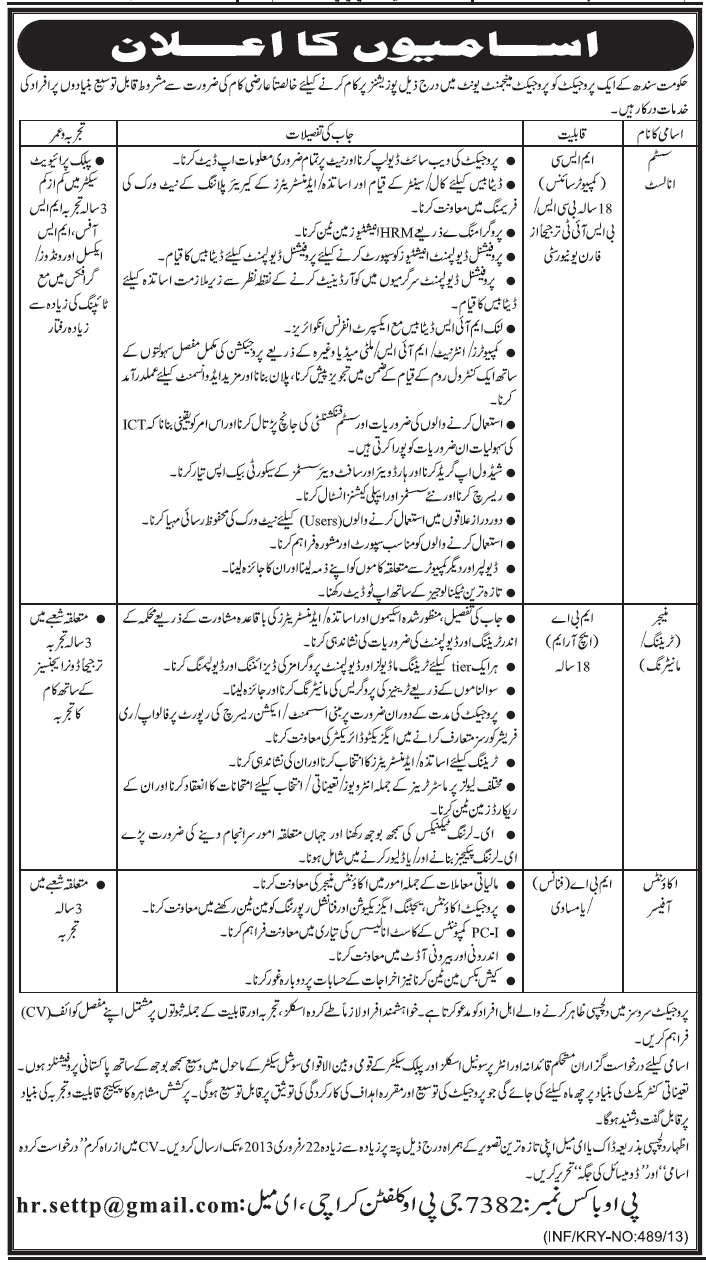 اسامیوں کا اعلان
حکومت سندھ کے ایک پروجیکٹ کو پروجیکٹ مینجمنٹ یونٹ میں درج ذیل پوزیشنز پر کام کرنے کیلئے خالصتاً عارضی کام کی ضرورت سے مشروط قابل توسیع بنیادوں پر افراد کی
خدمات درکار ہیں۔
اسامی کا نام
قابلیت
جاب کی تفصیلات
تجربہ و عمر
سسٹم
انالسٹ
ایم ایس سی
(کمپیوٹر سائنس)
18 سالہ بی سی ایس/
بی ایس آئی ٹی ترجیحاً از
فارن یونیورسٹی
● پروجیکٹ کی ویب سائٹ ڈیولپ کرنا اور نیٹ پر تمام ضروری معلومات اپ ڈیٹ کرنا۔
● ڈیٹا بیس کیلئے کال/سینٹر کے قیام اور اساتذہ/ایڈمنسٹریٹرز کے کیریئر پلاننگ کے نیٹ ورک کی
فریمنگ میں معاونت کرنا۔
● پروگرامنگ کے ذریعے HRM انیشٹیوز مین ٹین کرنا۔
● پروفیشنل ڈیولپمنٹ انیشٹیوز کو سپورٹ کرنے کیلئے پروفیشنل ڈیولپمنٹ کیلئے ڈیٹا بیس کا قیام۔
● پروفیشنل ڈیولپمنٹ سرگرمیوں میں کو آرڈینیٹ کرنے کے نقطہ نظر سے زیر ملازمت اساتذہ کیلئے
ڈیٹا بیس کا قیام۔
● لنک ایم آئی ایس ڈیٹا بیس مع ایکسپرٹ انفرنس انکوائریز۔
● کمپیوٹرز/انٹرنیٹ/ایم آئی ایس/ملٹی میڈیا وغیرہ کے ذریعے پروجیکشن کی مکمل مفصل سہولتوں کے
ساتھ ایک کنٹرول روم کے قیام کے ضمن میں تجویز پیش کرنا، پلان بنانا اور مزید ایڈوانسمنٹ کیلئے عملدرآمد
کرنا۔
● استعمال کرنے والوں کی ضروریات اور سسٹم فنکشنلٹی کی جانچ پڑتال کرنا اور اس امر کو یقینی بنانا کہ ICT
کی سہولیات ان ضروریات کو پورا کرتی ہیں۔
● شیڈول اپ گریڈ کرنا اور ہارڈ ویئر اور سافٹ ویئر سسٹمز کے سیکورٹی بیک اپس تیار کرنا۔
● ریسرچ کرنا اور نئے سسٹمز اور ایپلی کیشنز انسٹال کرنا۔
● دور دراز علاقوں میں استعمال کرنے والوں (Users) کیلئے نیٹ ورک کی محفوظ رسائی مہیا کرنا۔
● استعمال کرنے والوں کو مناسب سپورٹ اور مشورہ فراہم کرنا۔
● ڈیولپر اور دیگر کمپیوٹر سے متعلقہ کاموں کو اپنے ذمہ لینا اور ان کا جائزہ لینا۔
● تازہ ترین ٹیکنالوجیز کے ساتھ اپ ٹو ڈیٹ رکھنا۔
● پبلک پرائیویٹ
سیکٹر میں کم از کم
3 سالہ تجربہ ایم ایس
آفس، ایم ایس
ایکسل اور ونڈوز/
گرافکس میں مع
ٹائپنگ کی زیادہ سے
زیادہ رفتار
منیجر
(ٹریننگ/
مانیٹرنگ)
ایم بی اے
(ایچ آر ایم)
18 سالہ
● جاب کی تفصیل، منظور شدہ اسکیموں اور اساتذہ/ایڈمنسٹریٹرز کی باقاعدہ مشاورت کے ذریعے محکمہ کے
اندر ٹریننگ اور ڈیولپمنٹ کی ضروریات کی نشاندہی کرنا۔
● ہر ایک tier کیلئے ٹریننگ ماڈیولز اور ڈیولپمنٹ پروگرامز کی ڈیزائننگ اور ڈیولپمنگ کرنا۔
● سوالناموں کے ذریعے ٹرینیز کی پروگریس کی مانیٹرنگ کرنا اور جائزہ لینا۔
● پروجیکٹ کی مدت کے دوران ضرورت پر مبنی اسسمنٹ/ایکشن ریسرچ کی رپورٹ پر فالو اپ/ری
فریشر کورسز متعارف کرانے میں ایگزیکٹو ڈائریکٹر کی معاونت کرنا۔
● ٹریننگ کیلئے اساتذہ/ایڈمنسٹریٹرز کا انتخاب کرنا اور ان کی نشاندہی کرنا۔
● مختلف لیولز پر ماسٹر ٹرینرز کے جملہ انٹرویوز/تعیناتی/انتخاب کیلئے امتحانات کا انعقاد کرنا اور ان کے
ریکارڈز مین ٹین کرنا۔
● ای۔لرننگ ٹیکنیکس کی سمجھ بوجھ رکھنا اور جہاں متعلقہ امور سرانجام دینے کی ضرورت پڑے
ای۔لرننگ پیکیجز بنانے اور/یا ڈلیور کرنے میں شامل ہونا۔
● متعلقہ شعبے میں
3 سالہ تجربہ
ترجیحاً ڈونر ایجنسیز
کے ساتھ کام
کا تجربہ
اکاؤنٹس
آفیسر
ایم بی اے (فنانس)
/یا مساوی
● مالیاتی معاملات کے جملہ امور میں اکاؤنٹس منیجر کی معاونت کرنا۔
● پروجیکٹ اکاؤنٹس، بجٹنگ ایگزیکیوشن اور فنانشل رپورٹنگ کو مین ٹین رکھنے میں معاونت کرنا۔
● PC-I کمپوننٹس کے کاسٹ انالیسس کی تیاری میں معاونت فراہم کرنا۔
● اندرونی اور بیرونی آڈٹ میں معاونت کرنا۔
● کیش بکس مین ٹین کرنا نیز اخراجات کے حسابات پر دوبارہ غور کرنا۔
● متعلقہ شعبے میں
3 سالہ
تجربہ
پروجیکٹ سروسز میں دلچسپی ظاہر کرنے والے اہل افراد کو مدعو کرتا ہے۔ خواہشمند افراد لازماً طے کردہ اسکلز، تجربہ اور قابلیت کے جملہ ثبوتوں پر مشتمل اپنے مفصل کوائف (CV)
فراہم کریں۔
اسامی کیلئے درخواست گزاران مستحکم قائدانہ اور انٹر پرسونیل اسکلز اور پبلک سیکٹر کے قومی و بین الاقوامی سوشل سیکٹر کے ماحول میں وسیع سمجھ بوجھ کے ساتھ پاکستانی پروفیشنلز ہوں۔
تعیناتی کنٹریکٹ کی بنیاد پر چھ ماہ کیلئے کی جائے گی جو پروجیکٹ کی توسیع اور مقررہ اہداف کی کارکردگی کی توثیق پر قابل توسیع ہوگی۔ پرکشش مشاہرہ کا پیکیج قابلیت و تجربہ کی بنیاد
پر قابل گفت و شنید ہوگا۔
اظہار دلچسپی بذریعہ ڈاک یا ای میل اپنی تازہ ترین تصویر کے ہمراہ درج ذیل پتہ پر زیادہ سے زیادہ 22/فروری 2013ء تک ارسال کردیں۔ CV میں از راہ کرم ”درخواست کردہ
اسامی“ اور ”ڈومیسائل کی جگہ“ تحریر کریں۔
پی او باکس نمبر: 7382 جی پی او کلفٹن کراچی، ای میل: hr.settp@gmail.com
(INF/KRY-NO:489/13)